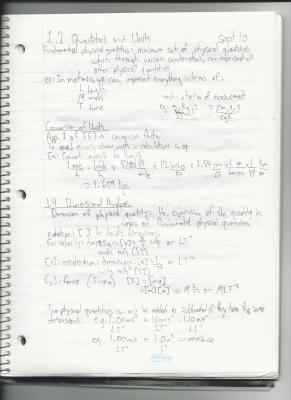 1.2 Quantities and Units Sept 10
Fundamental physical quantities = minimum set of physical quantities
which through various combinations, can represent all
other physical quantities
ex: In mechanics, we can represent everything in terms of:
L length
M mass
T time
unit: a term of measurement
eg m, kg, s
SI
cgs
Conversion of Units
conversion factor
show units in calculations
Ex: Convert 1 mile/h to km/h
1 mile/h = 1 mile/h x 5280 ft/mile x 12 inches/ft x 2.54 cm
= 1.609 km/h
1.4 Dimensional Analysis
Dimension of physical quantity = the expression of the quantity in
fundamental physical quantities
notation: [ ] to denote dimensions
Ex: velocity dimensions: [v] = L/T or LT⁻¹
units m/s (SI)
Ex2: acceleration: dimensions: [a] = L/T² or LT⁻²
units m/s² (SI)
Ex3: force (F=ma) [F] = [ma]
= [m][a] = M L/T² or MLT⁻²
Two physical quantities can only be added or subtracted if they have the same
dimensions. e.g. 1.00 ms⁻¹
LT⁻¹ LT⁻¹ LT⁻¹
eg. 1.00 ms⁻¹ + 1.0 = nonsense
LT⁻¹
Hilroy